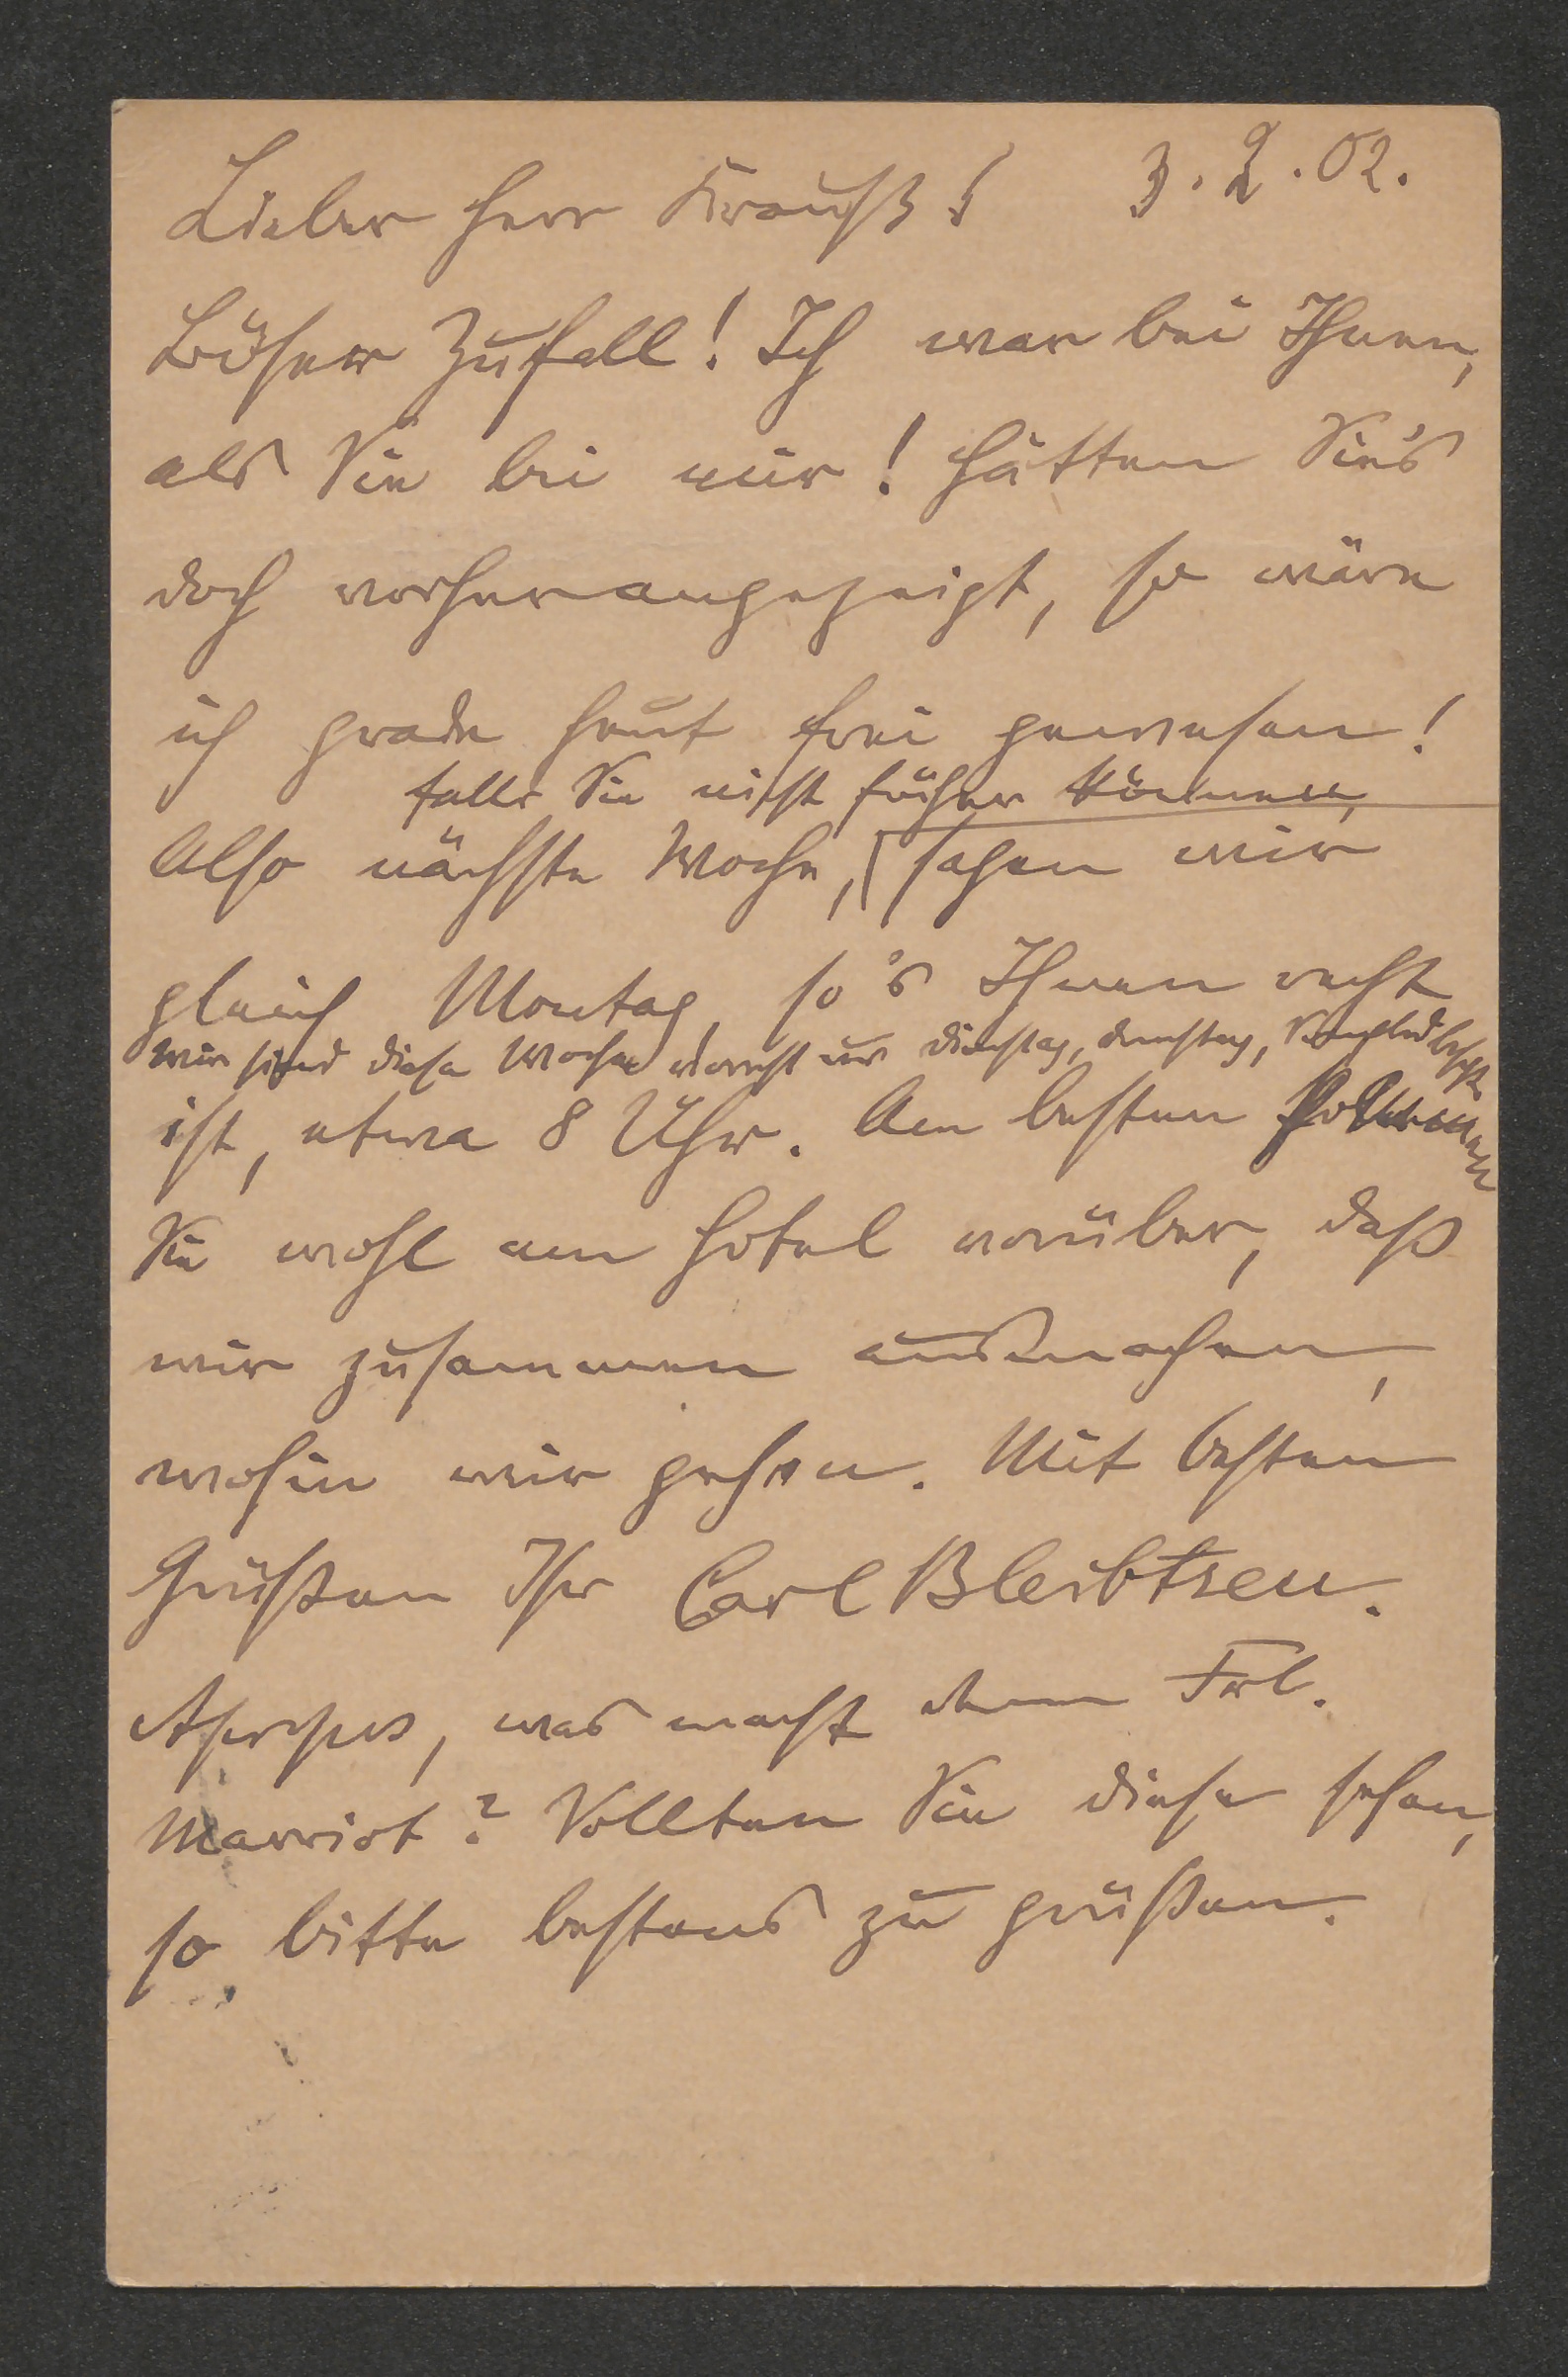 Lieber Herr Krauß! 3.2.02.
Böser Zufall! Ich war bei Ihnen,
als Sie bei mir! Hätten Sie's
doch vorher angezeigt, so wäre
ich grade heut frei gewesen!
falls Sie nicht früher können,
Also nächste Woche, sagen wir
gleich Montag, so's Ihnen recht
wir sind diese Woche nur Dienstag, Donnstag, besetzt
ist, etwa 8 Uhr. Am besten kommen
Sie wohl am Hotel vorüber, daß
wir zusammen ausmachen,
wohin wir gehen. Mit besten
Grüßen Ihr Carl Bleibtreu.
Apropos, was macht denn Frl.
Marriot? Sollten Sie diese sehen,
so bitte bestens zu grüßen.